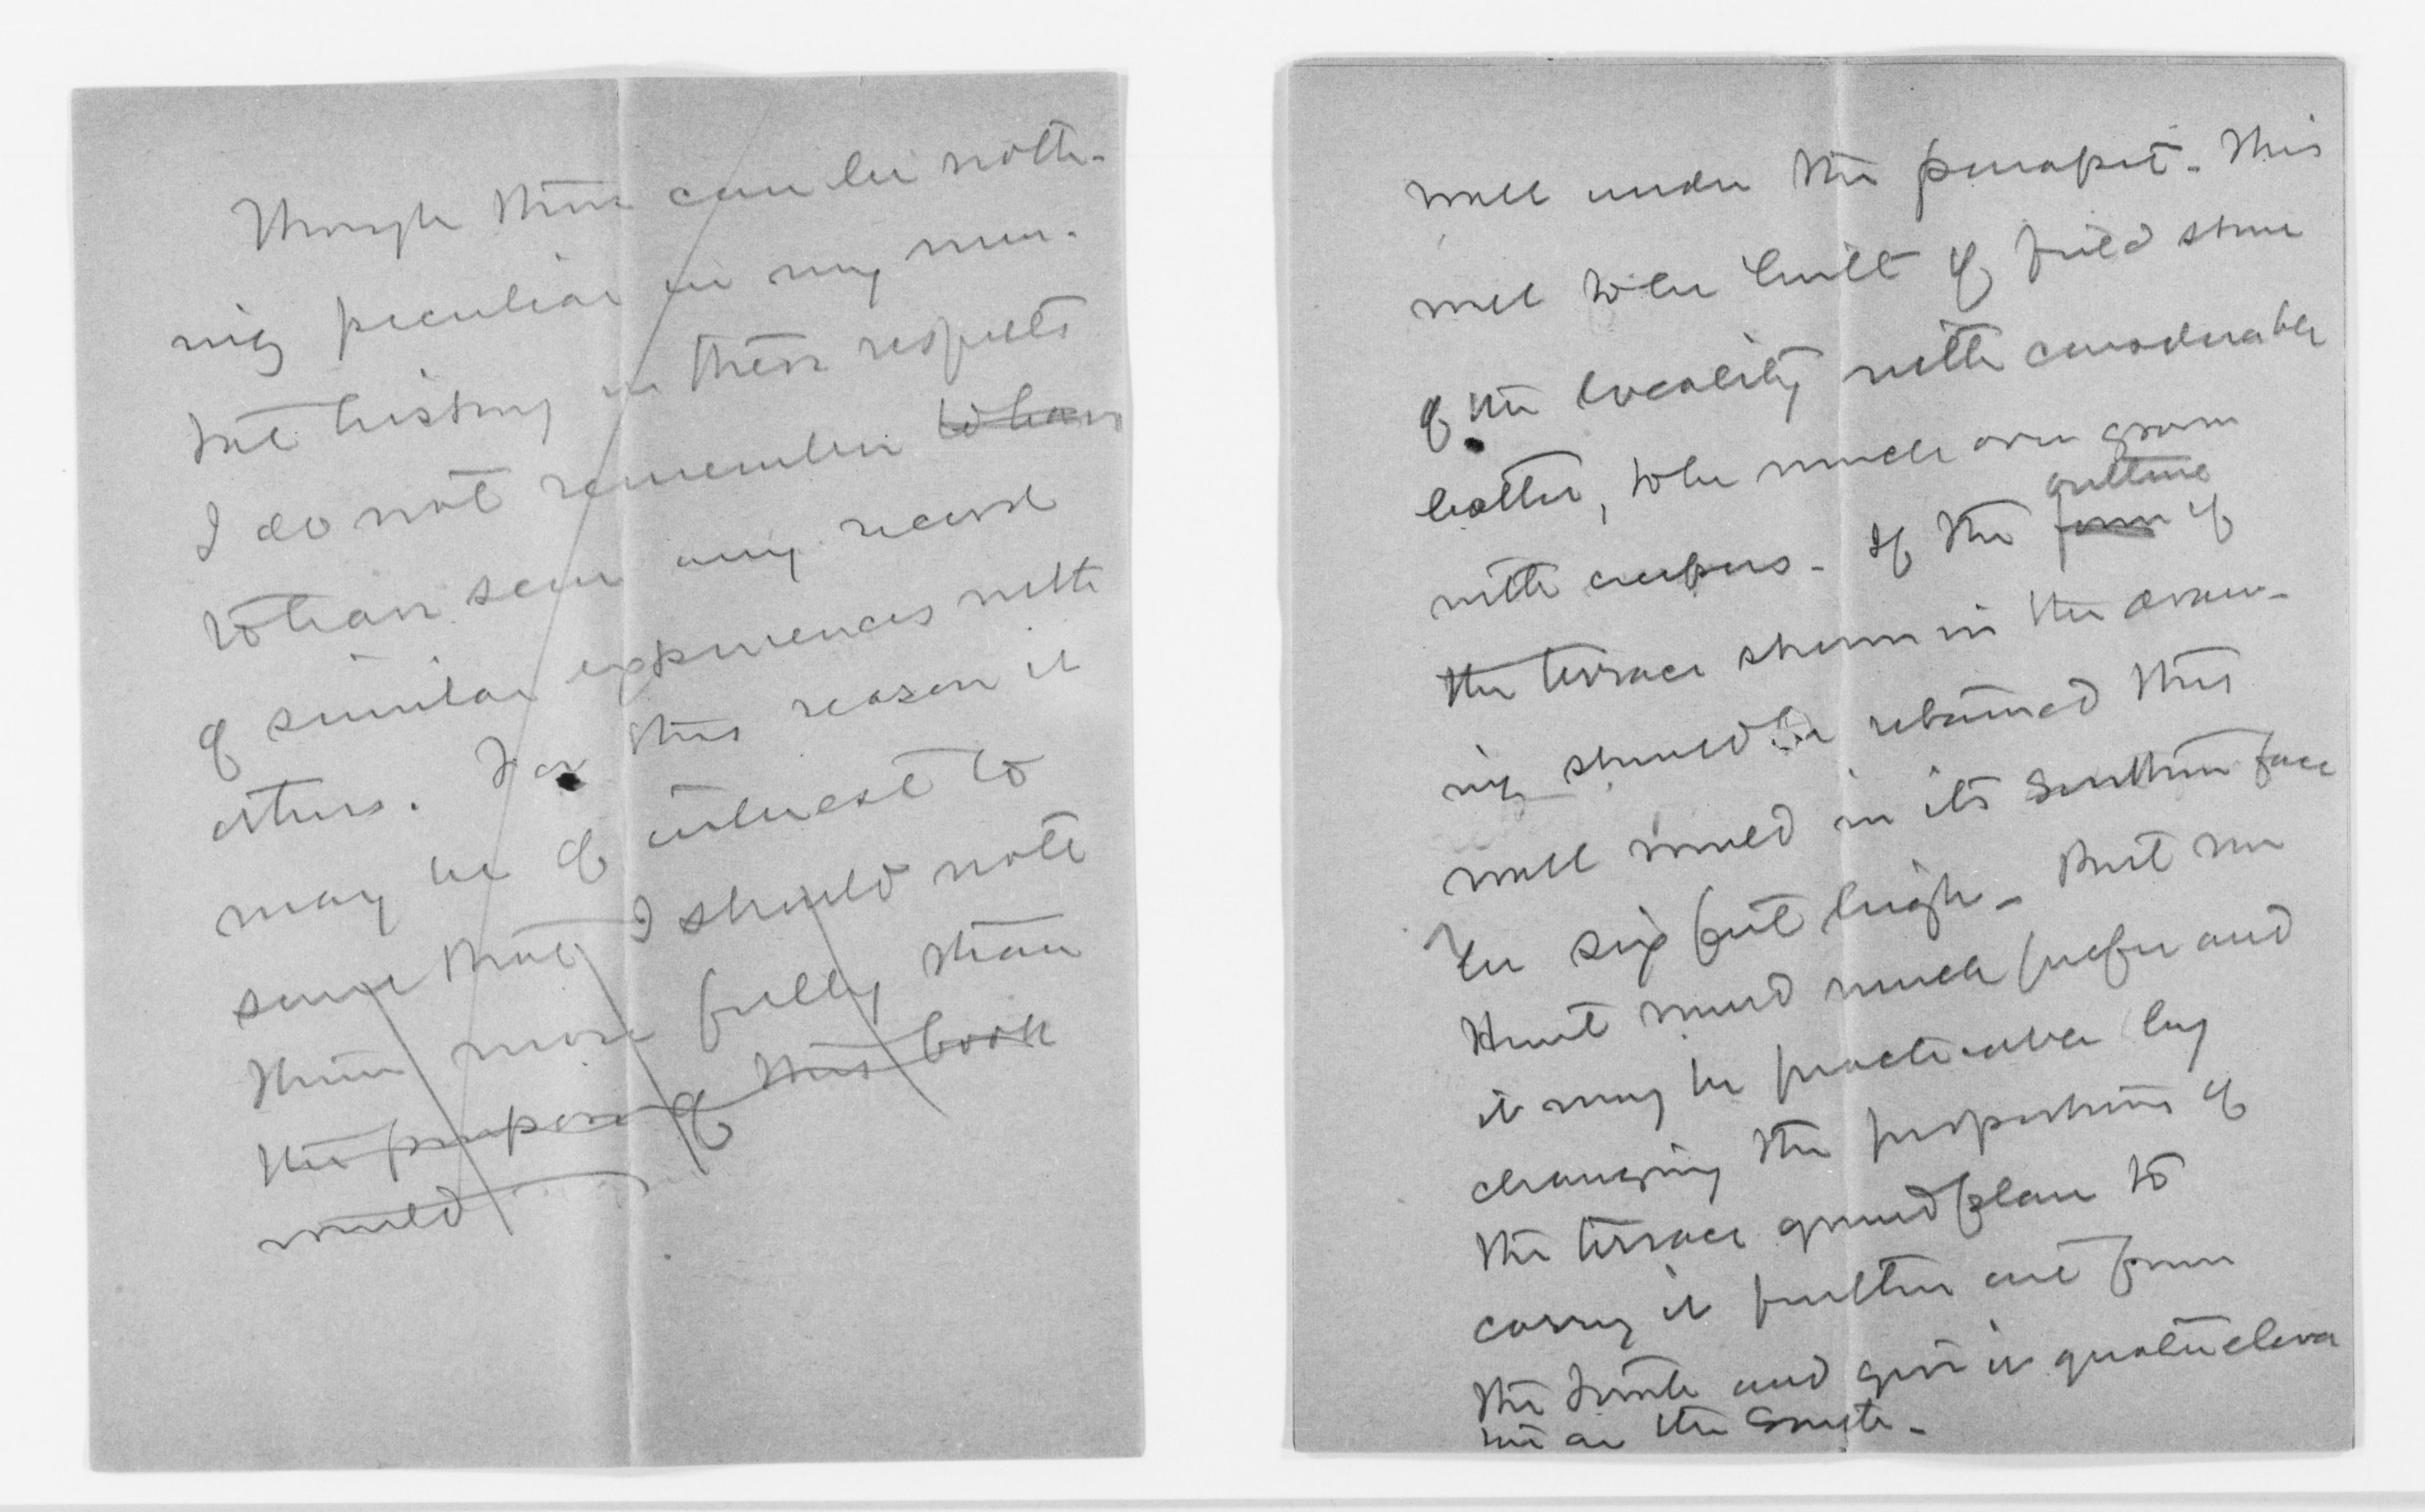 Though there can be noth-
ing peculiar in my men-
tal history in these respects
I do not remember to have
to have seen any record
of similar experiences with
others. For this reason it
may be of interest to
some that I should note
them more fully than
the purpose of this book
would
wall under the parapet. This
wall to be built of field stone
of the locality with considerable
batter, to be much over grown
with creepers. If the outline
form of
the terrace shown in the draw-
ing should be retained this
wall would in its Southern face
be six feet high. But Mr
Hunt would much prefer and
it may be practicable by
changing the proportions of
the terrace ground plan to
carry it further out from
the and give it greater eleva
tion on the South.